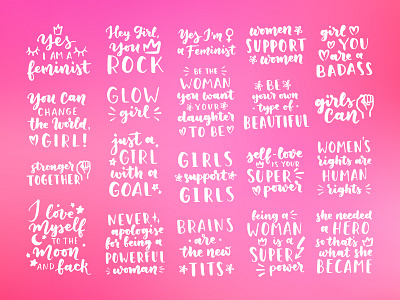 Yes
I AM A
feminist
Hey Girl,
you
ROCK
Yes I'm
a Feminist
women
SUPPORT
women
girl
YOU
are a
BADASS
You Can
CHANGE
the World,
GIRL!
GLOW
girl
BE THE
WOMAN
you want
YOUR
daughter
TO BE
BE
your own
type of
BEAUTIFUL
girls
CAN
stronger
TOGETHER
just a
GIRL
with a
GOAL
GIRLS
support
GIRLS
self-love
IS YOUR
SUPER
power
WOMEN'S
rights are
HUMAN
rights
I love
Myself
TO THE
Moon
AND back
NEVER
apologise
for being a
POWERFUL
woman
BRAINS
are
the new
TITS
being a
WOMAN
is a
SUPER
power
she needed
a HERO
so thats
what she
BECAME